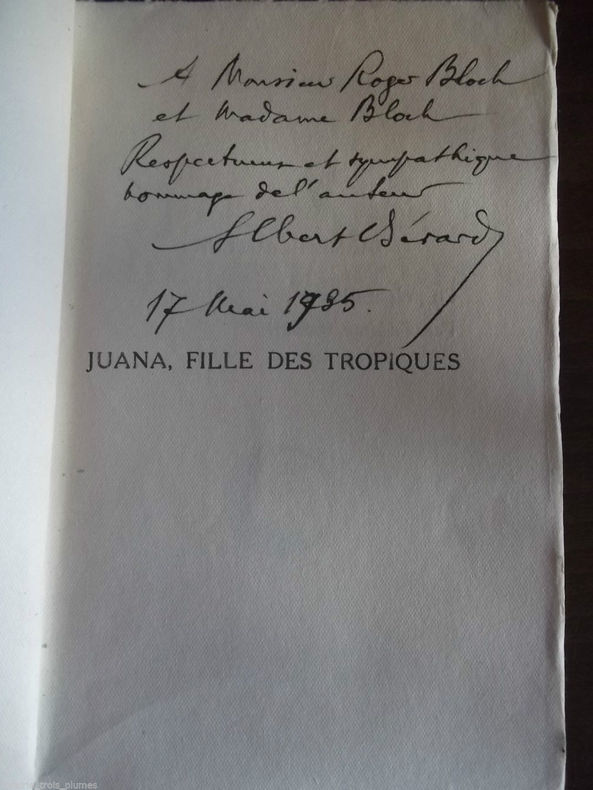 A Monsieur Roger Bloch
et Madame Bloch
Respectueux et sympathique
hommage de l'auteur
Albert Bérard
17 Mai 1935.
JUANA, FILLE DES TROPIQUES
trois_plumes